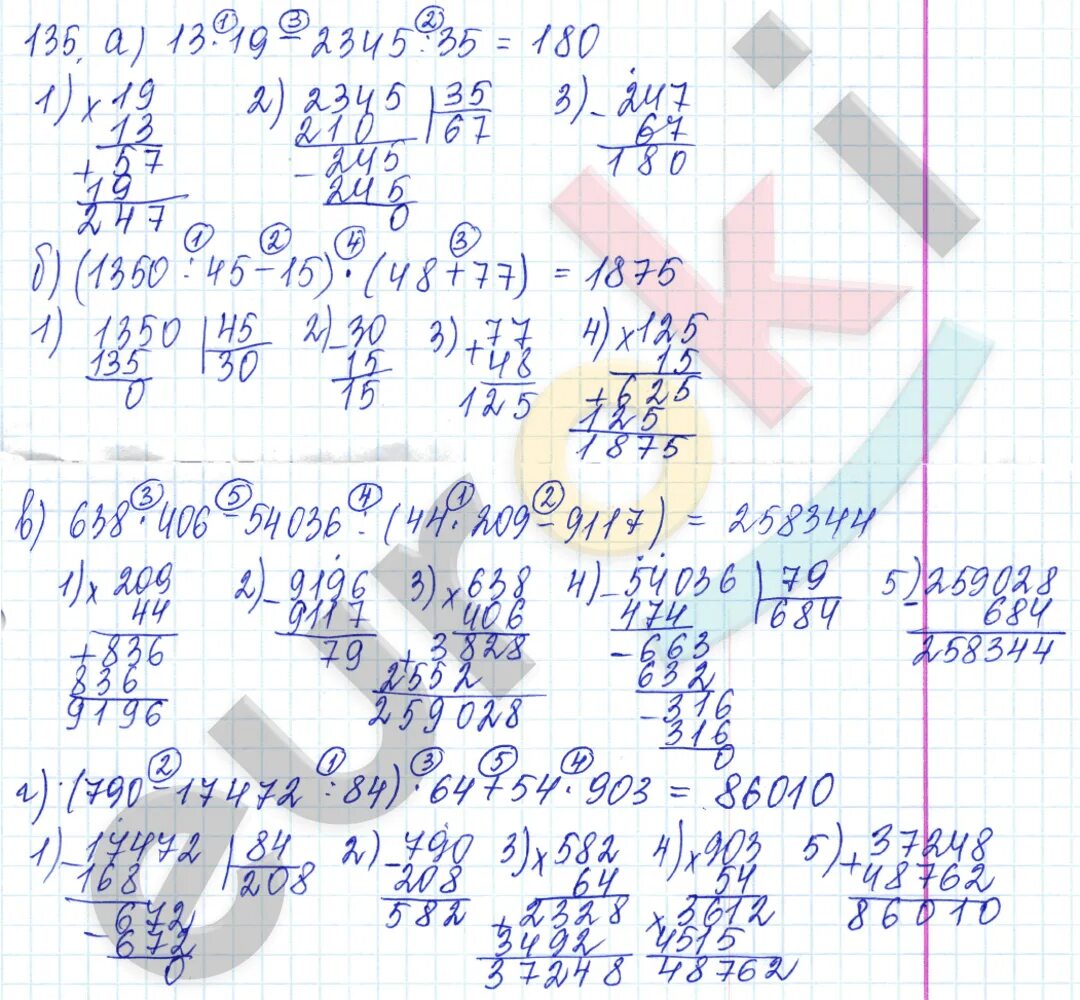 135. а) 13·19 − 2345:35 = 180
① ③ ②
1) × 19
13
+ 57
19
247
2) 2345 | 35
210 67
− 245
245
0
3) − 247
67
180
① ② ④ ③
б) (1350 : 45 − 15) · (48 + 77) = 1875
1) 1350 | 45
135 30
0
2) − 30
15
15
3) + 77
48
125
4) × 125
15
+ 625
125
1875
③ ⑤ ④ ① ②
в) 638 · 406 − 54036 : (44 · 209 − 9117) = 258344
1) × 209
44
+ 836
836
9196
2) − 9196
9117
79
3) × 638
406
+ 3828
2552
259028
4) − 54036 | 79
474 684
− 663
632
− 316
316
0
5) − 259028
684
258344
② ① ③ ⑤ ④
г) (790 − 17472 : 84) · 64 + 54 · 903 = 86010
1) − 17472 | 84
168 208
− 672
672
0
2) − 790
208
582
3) × 582
64
+ 2328
3492
37248
4) × 903
54
× 3612
4515
48762
5) + 37248
48762
86010
euroki